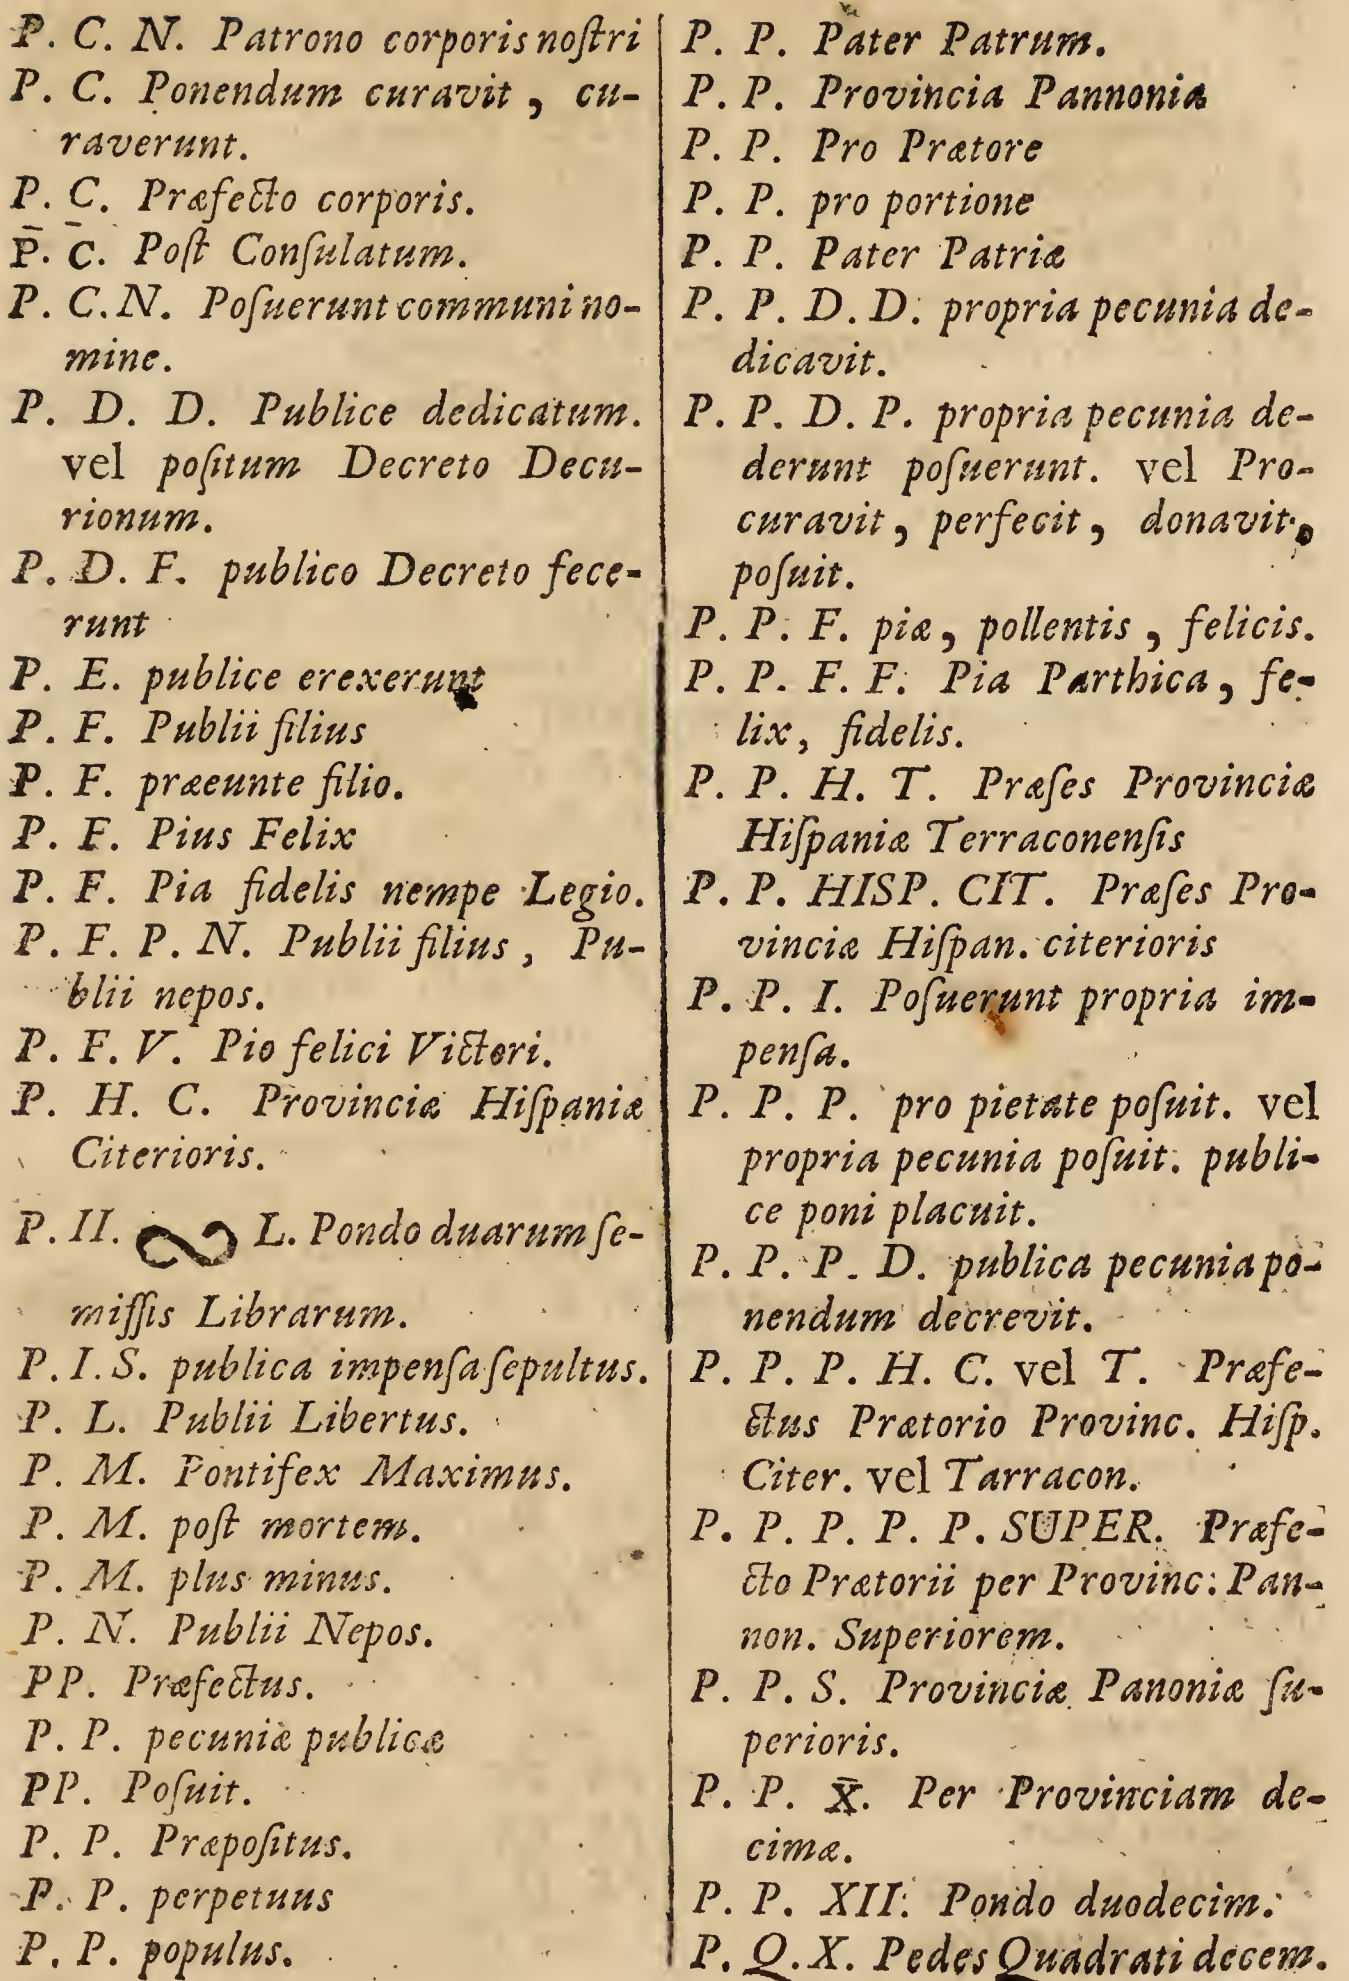 P. C. N. Patrono corporis noſtri
P. C. Ponendum curavit, cu-
raverunt.
P. C. Præfecto corporis.
P̄. C̄. Poſt Conſulatum.
P. C. N. Poſuerunt communi no-
mine.
P. D. D. Publice dedicatum.
vel poſitum Decreto Decu-
rionum.
P. D. F. publico Decreto fece-
runt
P. E. publice erexerunt
P. F. Publii filius
P. F. præeunte filio.
P. F. Pius Felix
P. F. Pia fidelis nempe Legio.
P. F. P. N. Publii filius, Pu-
blii nepos.
P. F. V. Pio felici Victori.
P. H. C. Provinciæ Hiſpaniæ
Citerioris.
P. II. ∾ L. Pondo duarum ſe-
miſſis Librarum.
P. I. S. publica impenſa ſepultus.
P. L. Publii Libertus.
P. M. Pontifex Maximus.
P. M. poſt mortem.
P. M. plus minus.
P. N. Publii Nepos.
PP. Præfectus.
P. P. pecuniæ publicæ
PP. Poſuit.
P. P. Præpoſitus.
P. P. perpetuus
P. P. populus.
P. P. Pater Patrum.
P. P. Provincia Pannonia
P. P. Pro Prætore
P. P. pro portione
P. P. Pater Patriæ
P. P. D. D. propria pecunia de-
dicavit.
P. P. D. P. propria pecunia de-
derunt poſuerunt. vel Pro-
curavit, perfecit, donavit,
poſuit.
P. P. F. piæ, pollentis, felicis.
P. P. F. F. Pia Parthica, fe-
lix, fidelis.
P. P. H. T. Præſes Provinciæ
Hiſpaniæ Terraconenſis
P. P. HISP. CIT. Præſes Pro-
vinciæ Hiſpan. citerioris
P. P. I. Poſuerunt propria im-
penſa.
P. P. P. pro pietate poſuit. vel
propria pecunia poſuit. publi-
ce poni placuit.
P. P. P. D. publica pecunia po-
nendum decrevit.
P. P. P. H. C. vel T. Præfe-
ctus Prætorio Provinc. Hiſp.
Citer. vel Tarracon.
P. P. P. P. P. SUPER. Præfe-
cto Prætorii per Provinc: Pan-
non. Superiorem.
P. P. S. Provinciæ Panoniæ ſu-
perioris.
P. P. X̄. Per Provinciam de-
cimæ.
P. P. XII. Pondo duodecim.
P. Q. X. Pedes Quadrati decem.